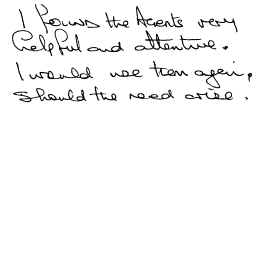 I found the Agents very
helpful and attentive.
I would use them again,
should the need arise.